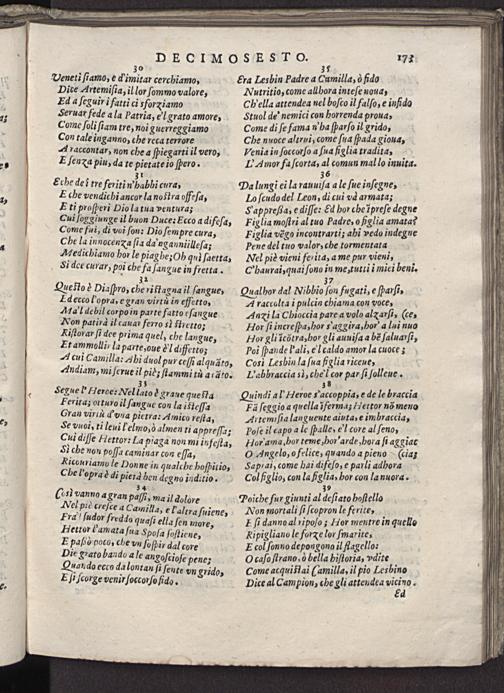 DECIMOSESTO. 173
30
Veneti siamo, e d'imitar cerchiamo,
Dice Artemisia, il lor sommo valore,
Ed a seguir i fatti ci sforziamo
Seruar fede a la Patria, e'l grato amore,
Come soli siam tre, noi guerreggiamo
Con tale inganno, che reca terrore
A raccontar, non che a spiegarti il vero,
E senza piu, da te pietate io spero.
31
E che dei tre feriti n'habbi cura,
E che vendichi ancor la nostra offesa,
E ti prosperi Dio la tua ventura;
Cui soggiunge il buon Duce: Ecco a difesa,
Come fui, di voi son: Dio sempre cura,
Che la innocenza sia da'gganni illesa;
Medichiamo hor le piaghe; Oh quì saetta,
Si dee curar, poi che fa sangue in fretta.
32
Questo è Diaspro, che ristagna il sangue,
Ed ecco l'opra, e gran virtù in effetto,
Ma'l debil corpo in parte fatto esangue
Non patirà il cauar ferro sì stretto;
Ristorar si dee prima quel, che langue,
Et ammollir la parte, oue è'l difetto;
A cui Camilla: Ahi duol pur cessi alquāto,
Andiam, mi serue il piè; stammi tù a cāto.
33
Segue l'Heroe: Nel lato è graue questa
Ferita; otturo il sangue con la istessa
Gran virtù d'vna pietra: Amico resta,
Se vuoi, ti leui l'elmo, ò almen ti appressa;
Cui disse Hettor: La piaga non mi infesta,
Sì che non possa caminar con essa,
Ricouriamo le Donne in qualche hospitio,
Che l'opra è di pietà ben degno inditio.
34
Così vanno a gran passi, ma il dolore
Nel piè cresce a Camilla, e l'altra suiene,
Fra' sudor freddo quasi ella sen more,
Hettor l'amata sua Sposa sostiene,
E passò poco, che vn sospir dal core
Die grato bando a le angosciose pene;
Quando ecco da lontan si sente vn grido,
E si scorge venir soccorso fido.
35
Era Lesbin Padre a Camilla, ò fido
Nutritio, come allhora intese noua,
Ch'ella attendea nel bosco il falso, e infido
Stuol de' nemici con horrenda proua;
Come di se fama n'ha sparso il grido,
Che nuoce altrui, come sua spada gioua,
Venìa in soccorso a sua figlia tradita,
L'Amor fa scorta, al comun mal lo inuita.
36
Da lungi ei la rauuisa a le sue insegne,
Lo scudo del Leon, di cui và armata;
S'appressa, e disse: Ed hor che ìprese degne
Figlia mostri al tuo Padre, o figlia amata?
Figlia vēgo incontrarti; ahi vedo indegne
Pene del tuo valor, che tormentata
Nel piè vieni ferita, a me pur vieni,
C'haurai, quai sono in me, tutti i mici beni.
37
Qualhor dal Nibbio son fugati, e sparsi,
A raccolta i pulcin chiama con voce,
Anzi la Chioccia pare a volo alzarsi, (ce,
Hor si increspa, hor s'aggira, hor' a lui nuo
Hor gli īcōtra, hor gli auuisa a bē saluarsi,
Poi spande l'ali, e'l caldo amor la cuoce;
Così Lesbin la sua figlia riceue,
L'abbraccia sì, che'l cor par si solleue.
38
Quindi a l'Heroe s'accoppia, e de le braccia
Fà seggio a quella inferma; Hettor nō meno
Artemisia languente aiuta, e imbraccia,
Pose il capo a le spalle, e'l core al seno,
Hor'ama, hor teme, hor'arde, hora si aggiac
O Angelo, o felice, quando a pieno (cia;
Saprai, come hai difeso, e parli adhora
Col figlio, con la figlia, hor con la nuora.
39
Poiche fur giunti al desiato hostello
Non mortali si scopron le ferite,
E si danno al riposo; Hor mentre in quello
Ripigliano le forze lor smarite,
E col sonno depongono il flagello:
O caso strano, ò bella historia, vdite
Come acquistai Camilla, il pio Lesbino
Dice al Campion, che gli attendea vicino.
Ed